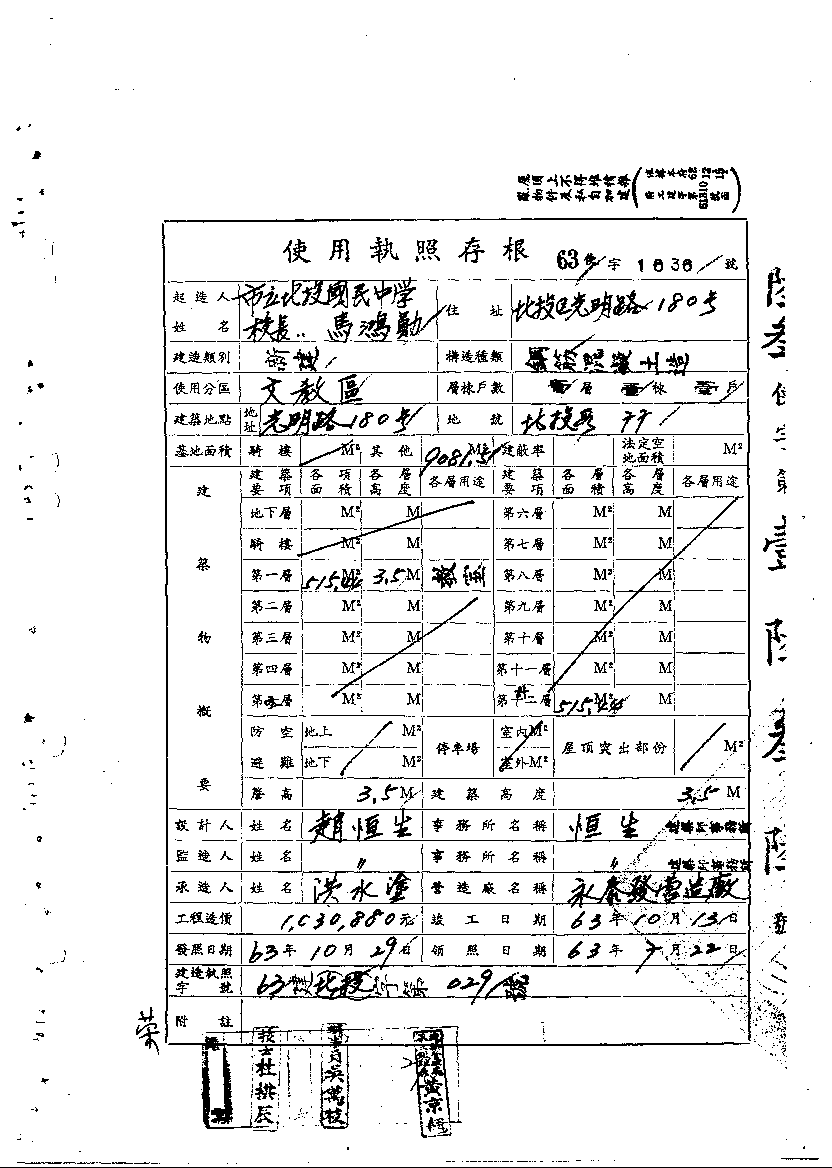 屋頂上不得堆積雜
物件及私自加建
使用執照存根 63使字1636號
起造人姓名 市立北投國民中學校長:馬鴻勛 住址 北投區光明路180号
建造類別 新建 構造種類 鋼筋混凝土造
使用分區 文教區 層棟戶數 壹層 壹棟 壹戶
建築地點 地址 光明路180号 地號
基地面積 騎樓 M² 其他 9081.5 M² 建蔽率 法定空地面積 M²
建築物概要
建築要項 各項面積 各層高度 各層用途 建築要項 各層面積 各層高度 各層用途
地下層 M² M 第六層 M² M
騎樓 M² M 第七層 M² M
第一層 515.44 M² 3.5 M 教室 第八層 M² M
第二層 M² M 第九層 M² M
第三層 M² M 第十層 M² M
第四層 M² M 第十一層 M² M
第五層 M² M 第十二層 計 515.44 M² M
防空避難 地上 M² 停車場 室內 M² 屋頂突出部份 M²
地下 M² 室外 M²
簷高 3.5 M 建築高度 3.5 M
設計人 姓名 趙恒生 事務所名稱 恒生建築師事務所
監造人 姓名 〃 事務所名稱 〃 建築師事務所
承造人 姓名 洪水塗 營造廠名稱 永泰發營造廠
工程造價 1,030,880元 竣工日期 63年10月13日
發照日期 63年10月29日 領照日期 63年 月22日
建造執照字號 63建(北投)字第029號
附註
技士杜拱辰